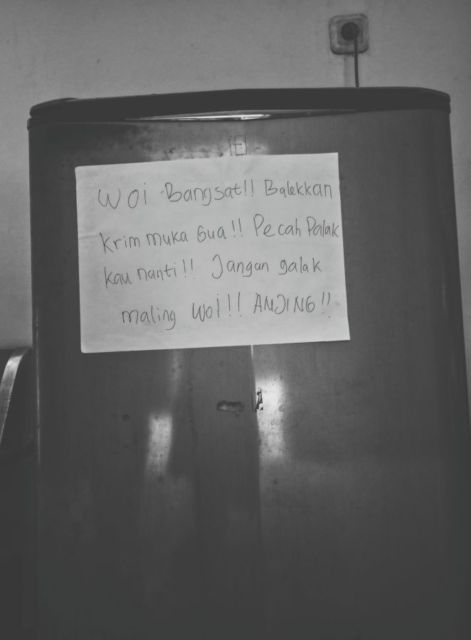 Woi Bangsat!! Balekkan
krim muka Gua!! Pecah Palak
kau nanti!! Jangan galak
maling Woi!! ANJING!!